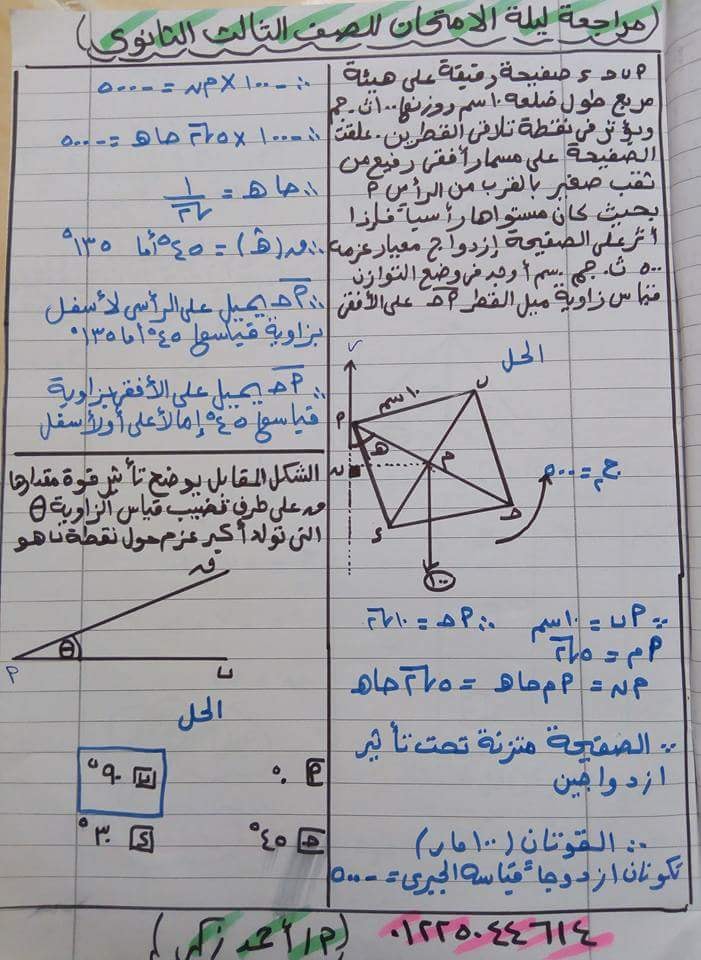 (مراجعة ليلة الامتحان للصف الثالث الثانوى)
أ ب ح ء صفيحة رقيقة على هيئة
مربع طول ضلعه ١٠سم ووزنها ١٠٠ث.جم
ويؤثر فى نقطة تلاقى القطرين. علقت
الصفيحة على مسمار أفقى رفيع من
ثقب صغير بالقرب من الرأس أ
بحيث كان مستواها رأسياً فإذا
أثر على الصفيحة إزدواج معيار عزمه
٥٠٠ ث.جم.سم أوجد فى وضع التوازن
قياس زاوية ميل القطر أح على الأفقى
الحل
ر
أ
١٠سم
ب
هـ
ن
م
ء
ح
١٠٠
ج = ٥٠٠
∵ أب = ١٠سم ∴ أح = ١٠√٢
أم = ٥√٢
م ن = أم حاهـ = ٥√٢ حاهـ
∵ الصفيحة متزنة تحت تأثير
ازدواجين
∴ القوتان (١٠٠، ر)
تكونان ازدواجاً قياسه الجبرى = -٥٠٠
∴ -١٠٠ × م ن = -٥٠٠
∴ -١٠٠ × ٥√٢ حاهـ = -٥٠٠
∴ حاهـ = ١/√٢
∴ ق(هـ) = ٤٥° أما ١٣٥°
∴ أح يميل على الرأسى لأسفل
بزاوية قياسها ٤٥° أما ١٣٥°
∴ أح يميل على الأفقى بزاوية
قياسها ٤٥° إما لأعلى أو لأسفل
الشكل المقابل يوضح تأثير قوة مقدارها
ق على طرف قضيب قياس الزاوية θ
التى تولد أكبر عزم حول نقطة ب هو
ق
θ
أ
ب
الحل
أ ٠° ب ٩٠°
ح ٤٥° ء ٣٠°
٠١٢٢٥٠٤٤٦١٤ (م/أحمد زكى)